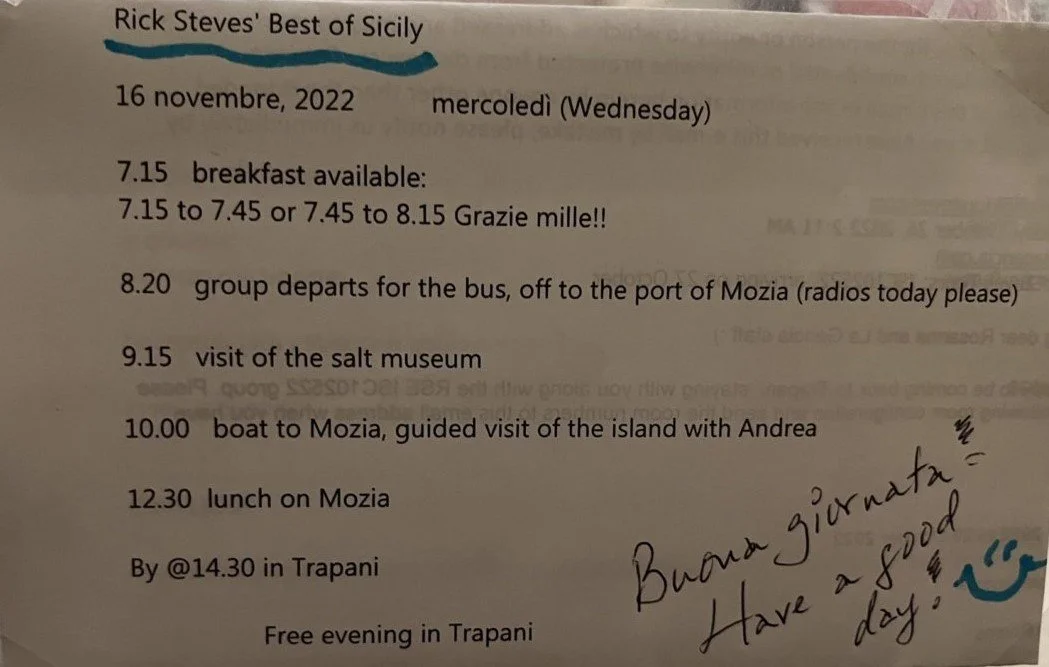 Rick Steves' Best of Sicily
16 novembre, 2022 mercoledì (Wednesday)
7.15 breakfast available:
7.15 to 7.45 or 7.45 to 8.15 Grazie mille!!
8.20 group departs for the bus, off to the port of Mozia (radios today please)
9.15 visit of the salt museum
10.00 boat to Mozia, guided visit of the island with Andrea
12.30 lunch on Mozia
By @14.30 in Trapani
Free evening in Trapani
Buona giornata!
Have a good
day!